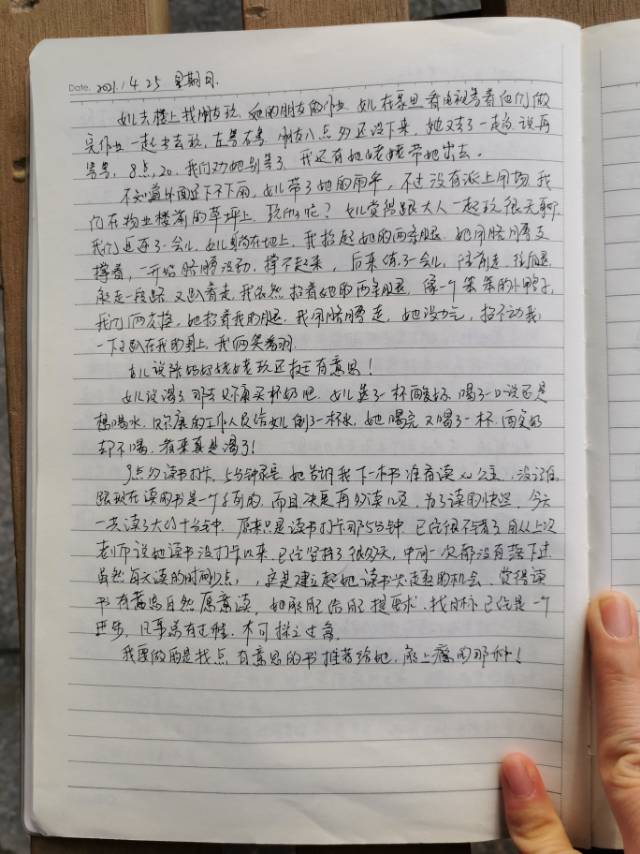 Date. 2021.4.25 星期日.
女儿去楼上找朋友玩，她的朋友的作业，女儿在家里看电视等着他们做
完作业一起出去玩，左等右等，朋友八点多还没下来，她又去了一趟，说再
等等，8点20，我们劝她别等了，我还有她姥姥带她出去。
不知道外面还下不下雨，女儿带了她的雨伞，不过没有派上用场，我
们在物业楼前的草坪上，玩什么呢？女儿觉得跟大人一起玩很无聊，
我们逗逗了一会儿，女儿躺在地上，我抬起她的两条腿，她用胳膊支
撑着，一开始胳膊没劲，撑不起来，后来练了一会儿，
能走一段路，又趴着走，我依然抬着她的两条腿，像一个笨笨的小鸭子，
我们俩交换，她抬着我的腿，我用胳膊走，她没力气，抬不动我，
一下子趴在我的身上，我俩笑着
女儿说陪妈妈姥姥玩还挺有意思！
女儿说渴了，那去贝尔康买杯奶吧，女儿要了一杯酸奶，喝了一口说还是
想喝水，贝尔康的工作人员给女儿倒了一杯水，她喝完又喝了一杯，
却不喝，看来真是渴了！
9点多读书打卡，5分钟录音，她告诉我下一本书准备读 公主，
跟现在读的书是一个系列的，而且决定再多读几页，为了读的快些，今天
一共读了大约十分钟，原来只是读书打卡那5分钟，已经很不错了，自从上次
老师说她读书没打卡以来，已经坚持了很多天，中间一次都没有落下过
虽然每天读的时间少点，，这是建立起她读书兴趣的机会，觉得读
书有意思自然愿意读，如果能给自己提要求，找目标已经是一个
进步，凡事总有过程，不可操之过急。
我要做的是找点有意思的书推荐给她，能上瘾的那种！